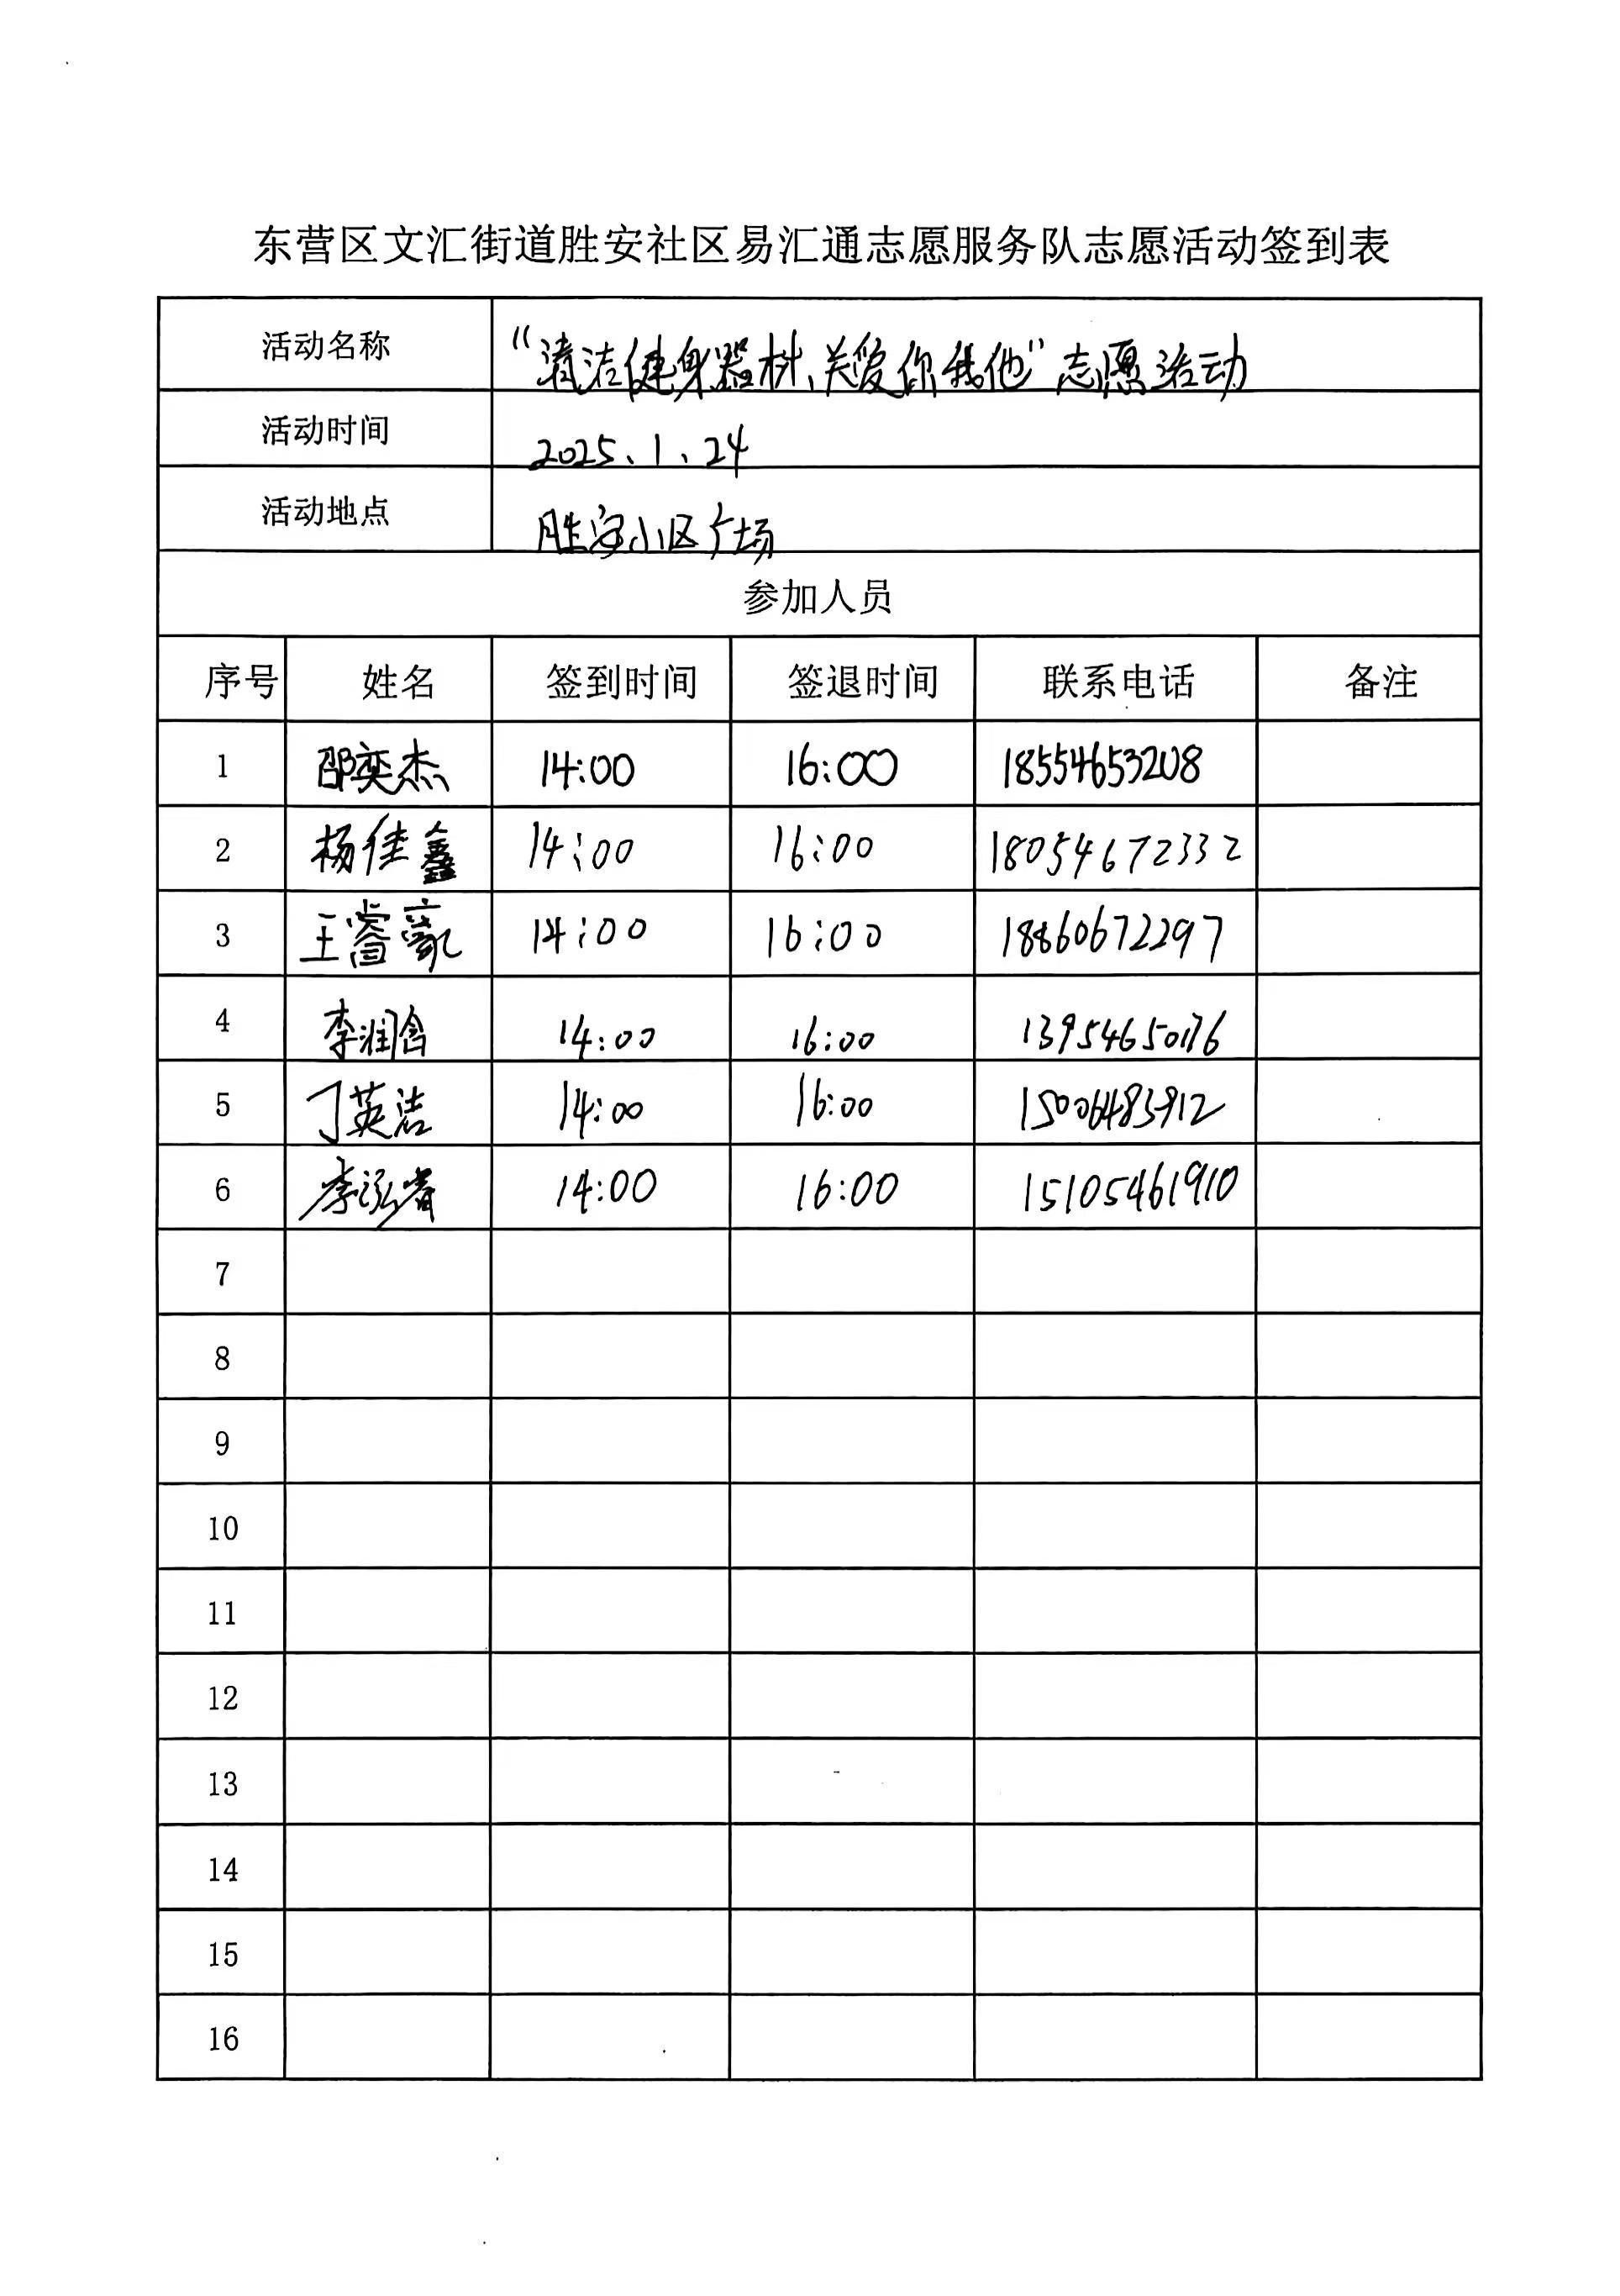 东营区文汇街道胜安社区易汇通志愿服务队志愿活动签到表
活动名称 “清洁健身器材、关爱你我他”志愿活动
活动时间 2025、1、24
活动地点 胜安小区广场
参加人员
序号 姓名 签到时间 签退时间 联系电话 备注
1 邵奕杰 14:00 16:00 18554653208
2 杨佳鑫 14:00 16:00 18054672332
3 王睿豪 14:00 16:00 18860672297
4 李润含 14:00 16:00 13954650176
5 丁英洁 14:00 16:00 15006483912
6 李泓睿 14:00 16:00 15105461910
7
8
9
10
11
12
13
14
15
16